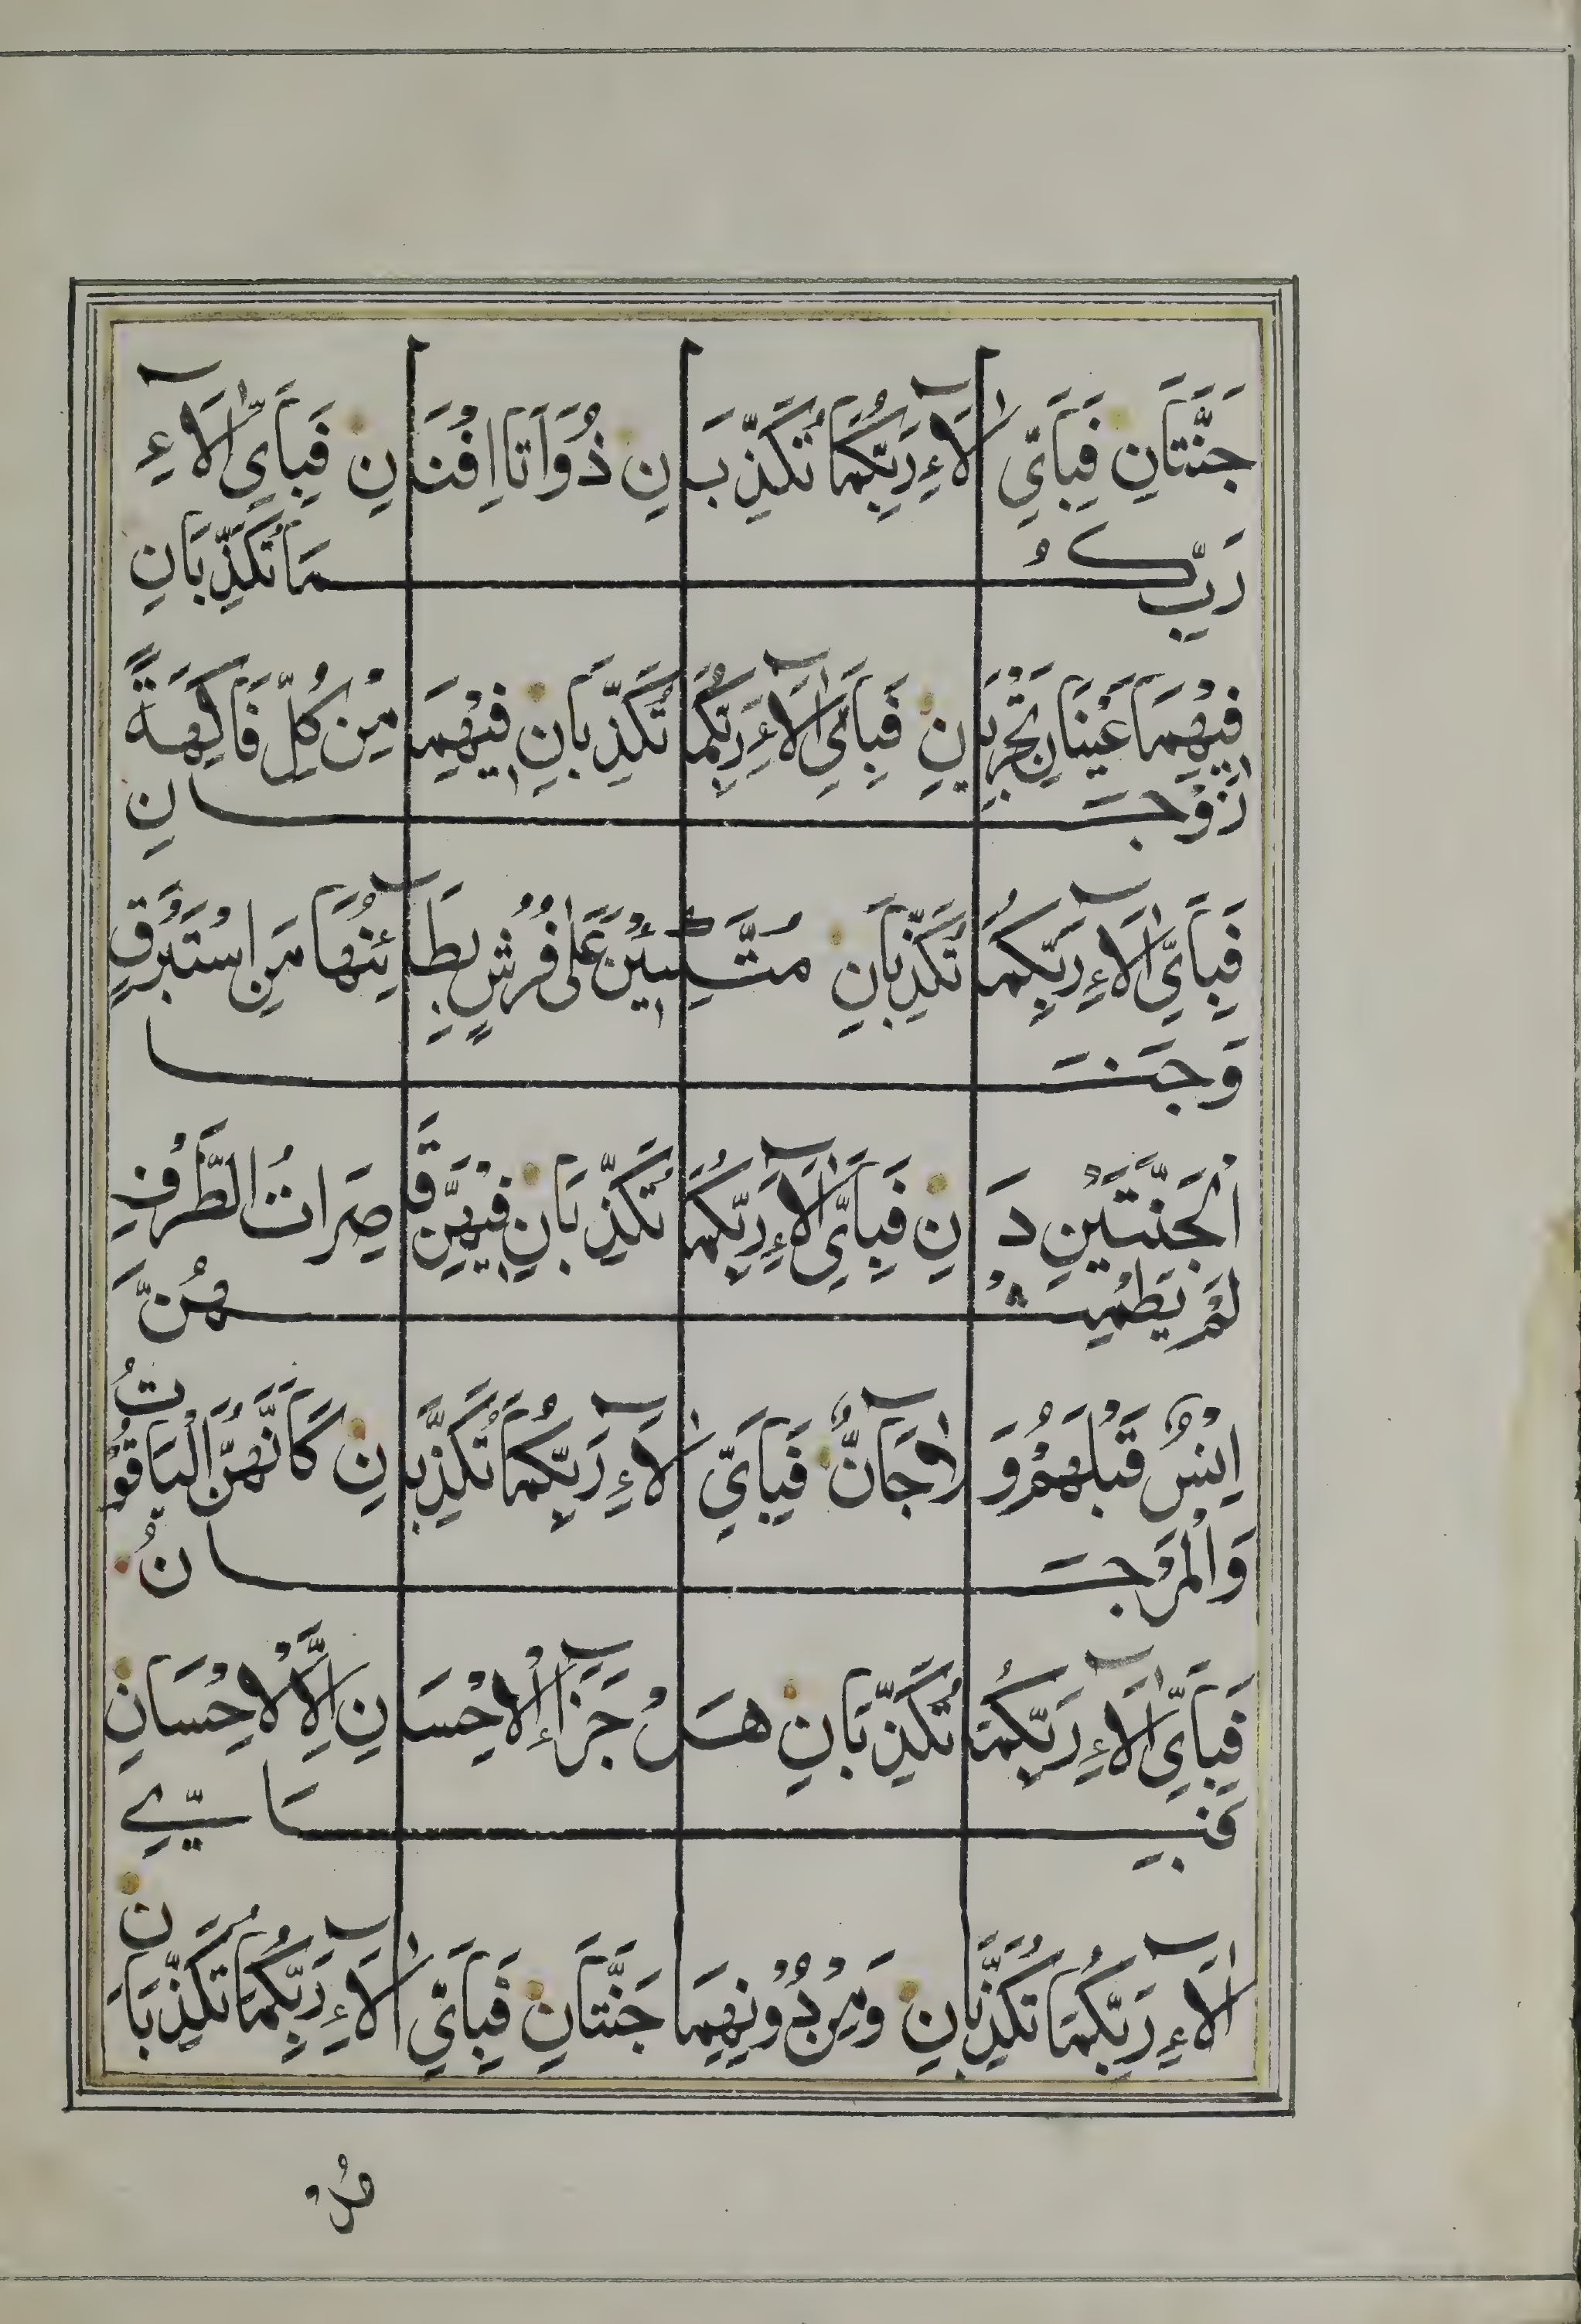 جَنَّتَانِ فَبِاَيِّ اٰلَآءِ رَبِّكُمَا تُكَذِّبَانِ ذَوَاتَا اَفْنَانٍ فَبِاَيِّ اٰلَآءِ
رَبِّكُمَا تُكَذِّبَانِ
فِيْهِمَا عَيْنَانِ تَجْرِيَانِ فَبِاَيِّ اٰلَآءِ رَبِّكُمَا تُكَذِّبَانِ فِيْهِمَا مِنْ كُلِّ فَاكِهَةٍ
زَوْجَانِ
فَبِاَيِّ اٰلَآءِ رَبِّكُمَا تُكَذِّبَانِ مُتَّكِئِيْنَ عَلٰى فُرُشٍ بَطَآئِنُهَا مِنْ اِسْتَبْرَقٍ
وَجَنَا
الْجَنَّتَيْنِ دَانِ فَبِاَيِّ اٰلَآءِ رَبِّكُمَا تُكَذِّبَانِ فِيْهِنَّ قَاصِرَاتُ الطَّرْفِ
لَمْ يَطْمِثْهُنَّ
اِنْسٌ قَبْلَهُمْ وَلَا جَآنٌّ فَبِاَيِّ اٰلَآءِ رَبِّكُمَا تُكَذِّبَانِ كَاَنَّهُنَّ الْيَاقُوْتُ
وَالْمَرْجَانُ
فَبِاَيِّ اٰلَآءِ رَبِّكُمَا تُكَذِّبَانِ هَلْ جَزَآءُ الْاِحْسَانِ اِلَّا الْاِحْسَانِ
فَبِاَيِّ
اٰلَآءِ رَبِّكُمَا تُكَذِّبَانِ وَمِنْ دُوْنِهِمَا جَنَّتَانِ فَبِاَيِّ اٰلَآءِ رَبِّكُمَا تُكَذِّبَانِ